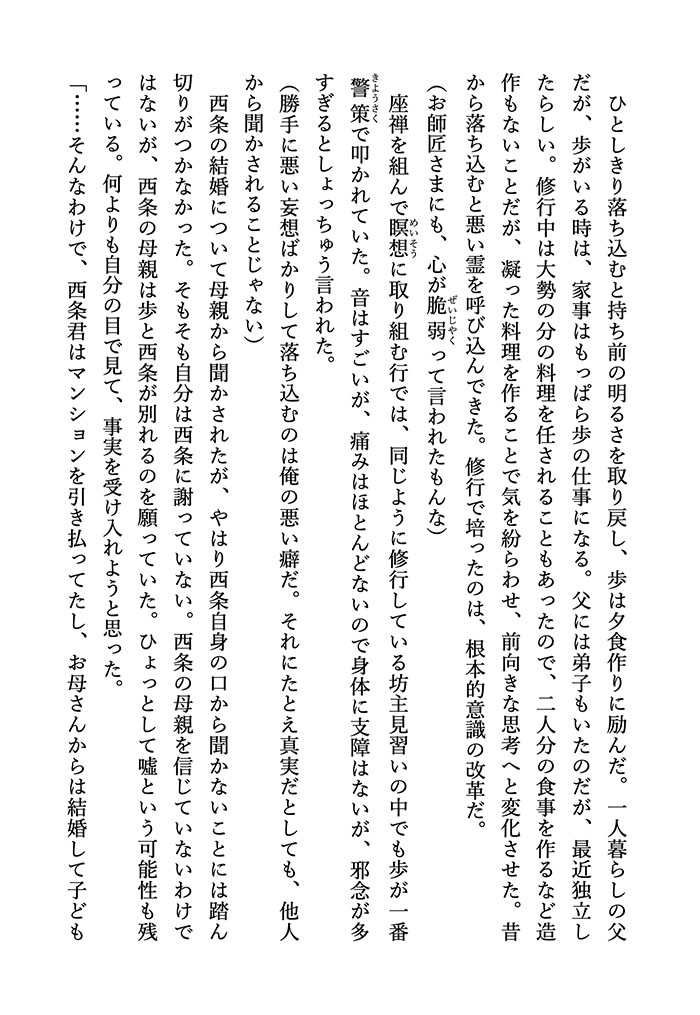 ひとしきり落ち込むと持ち前の明るさを取り戻し、歩は夕食作りに励んだ。一人暮らしの父
だが、歩がいる時は、家事はもっぱら歩の仕事になる。父には弟子もいたのだが、最近独立し
たらしい。修行中は大勢の分の料理を任されることもあったので、二人分の食事を作るなど造
作もないことだが、凝った料理を作ることで気を紛らわせ、前向きな思考へと変化させた。昔
から落ち込むと悪い霊を呼び込んできた。修行で培ったのは、根本的意識の改革だ。
（お師匠さまにも、心が脆弱って言われたもんな）
ぜいじゃく
座禅を組んで瞑想に取り組む行では、同じように修行している坊主見習いの中でも歩が一番
めいそう
警策で叩かれていた。音はすごいが、痛みはほとんどないので身体に支障はないが、邪念が多
きょうさく
すぎるとしょっちゅう言われた。
（勝手に悪い妄想ばかりして落ち込むのは俺の悪い癖だ。それにたとえ真実だとしても、他人
から聞かされることじゃない）
西条の結婚について母親から聞かされたが、やはり西条自身の口から聞かないことには踏ん
切りがつかなかった。そもそも自分は西条に謝っていない。西条の母親を信じていないわけで
はないが、西条の母親は歩と西条が別れるのを願っていた。ひょっとして嘘という可能性も残
っている。何よりも自分の目で見て、事実を受け入れようと思った。
「……そんなわけで、西条君はマンションを引き払ってたし、お母さんからは結婚して子ども